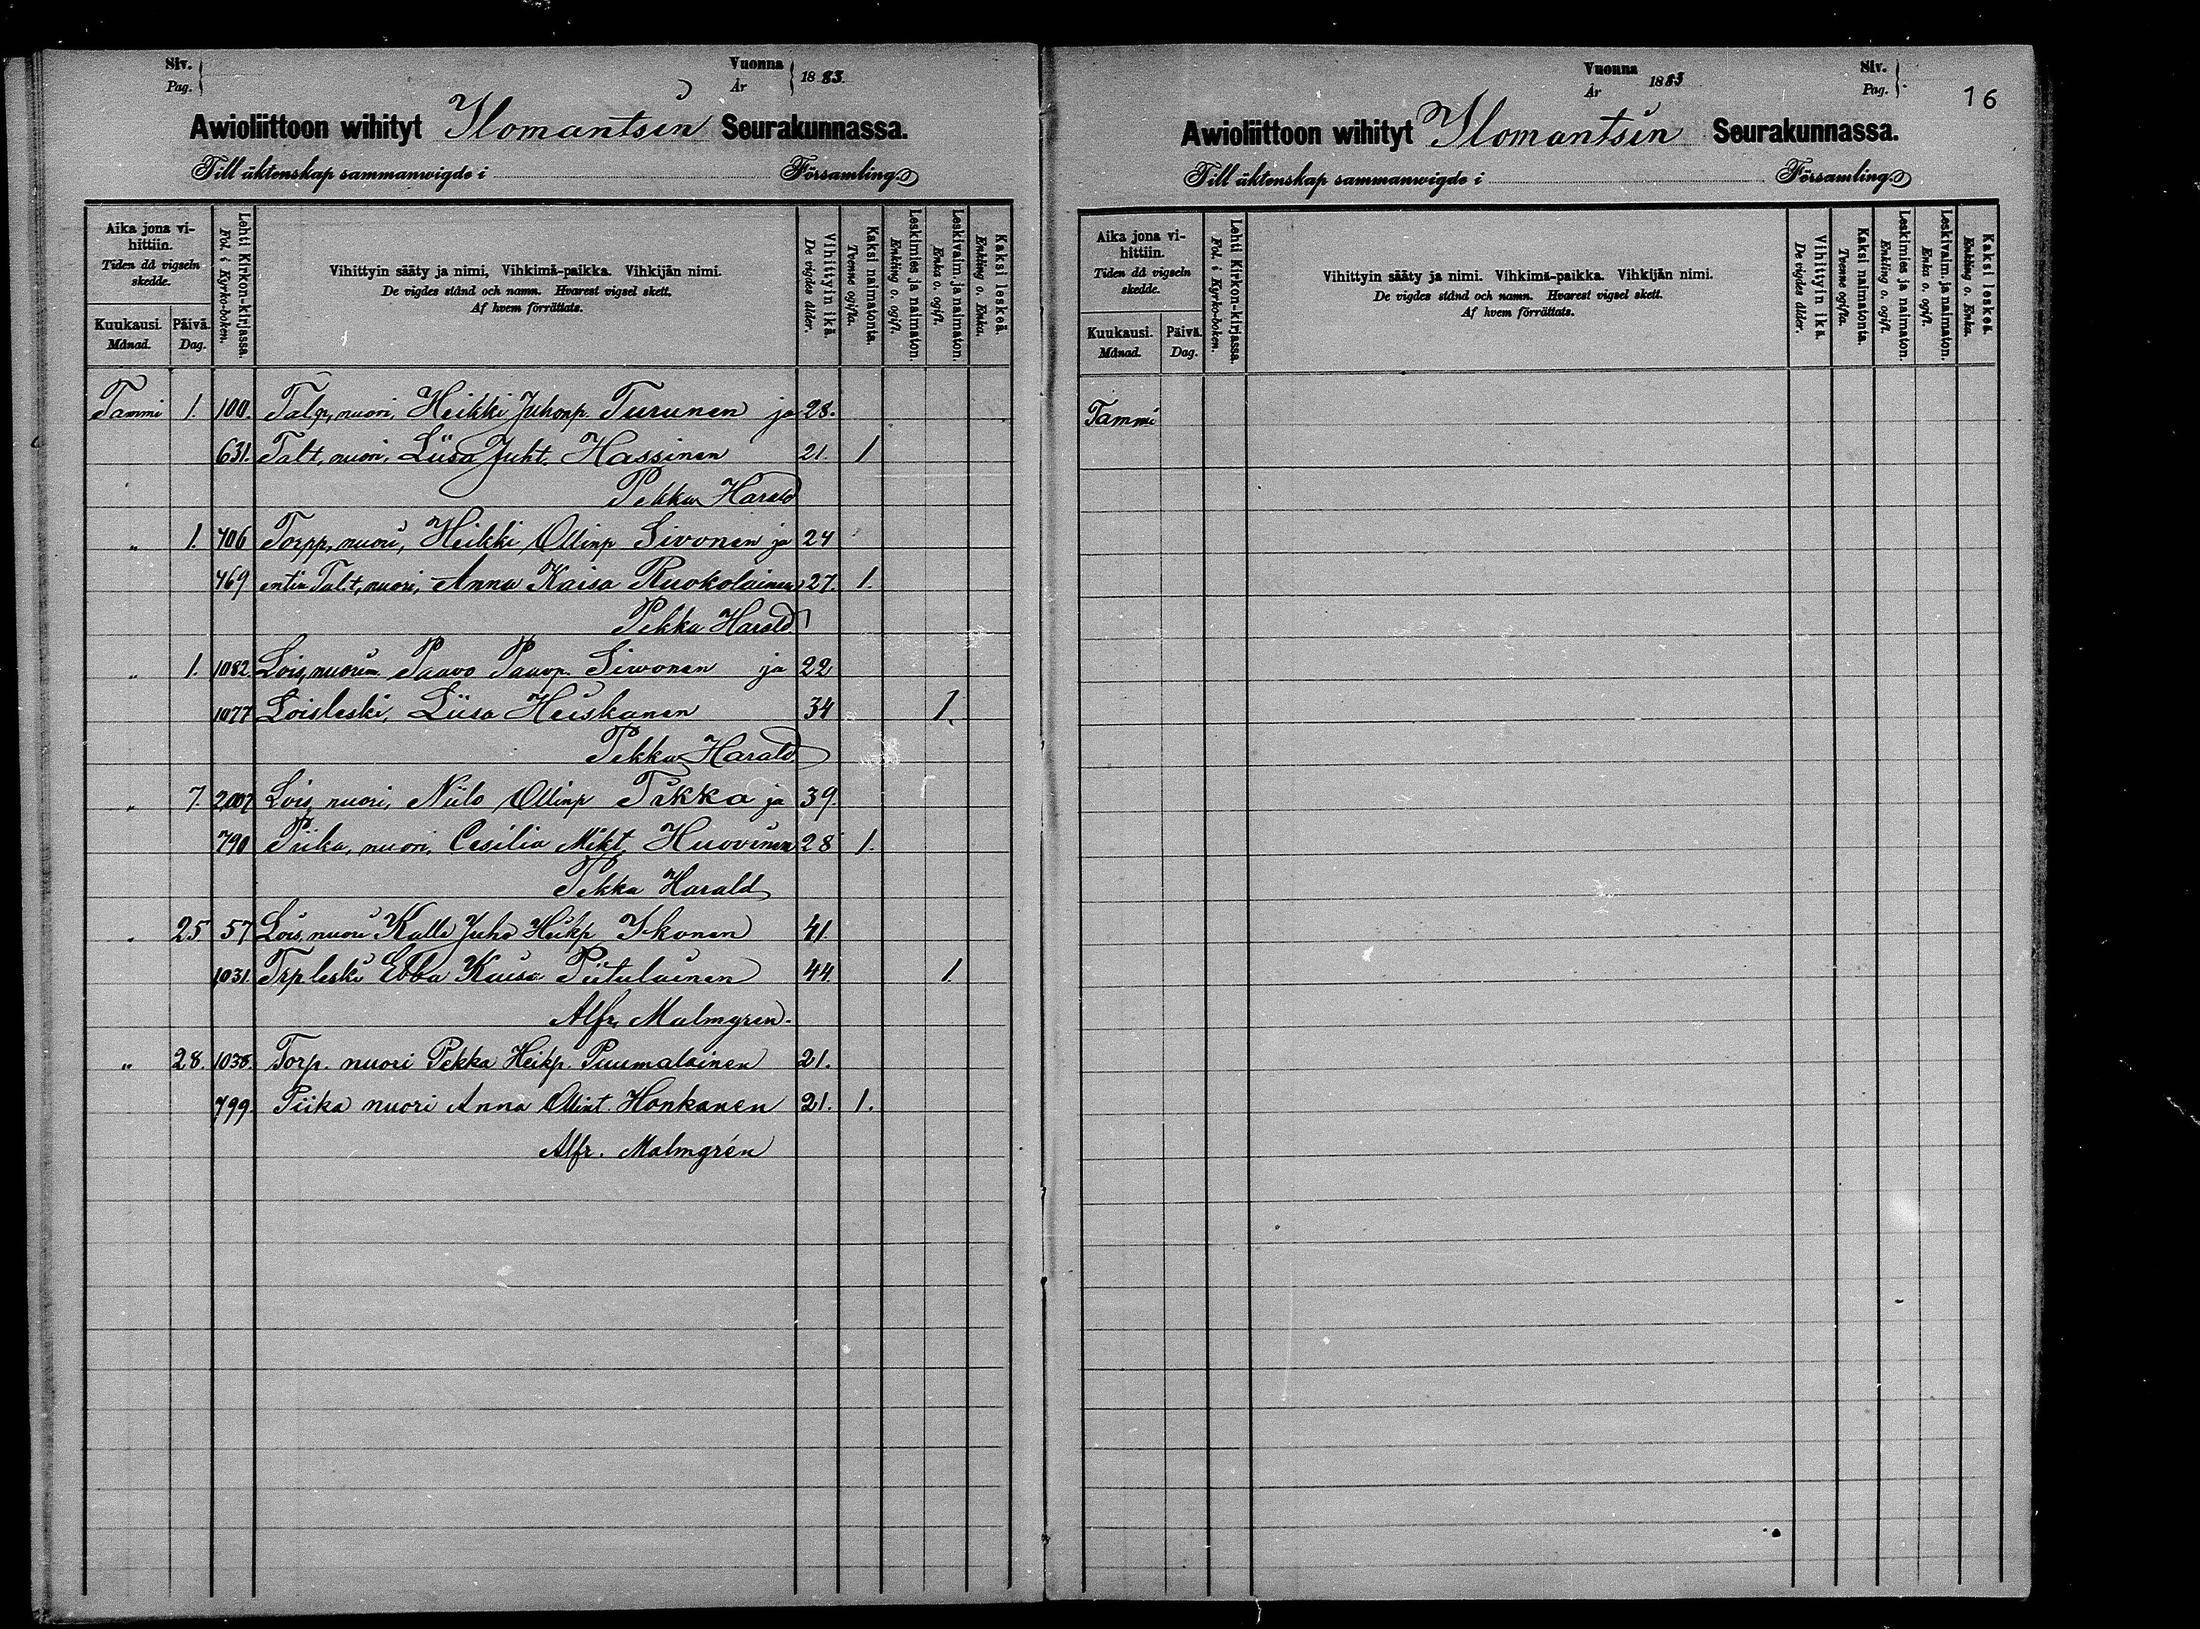 Siv.
Pag.
Vuonna
År
1883.
Awioliittoon wihityt Ilomantsin Seurakunnassa.
Till äktenskap sammanwigde i Församling.
Aika jona vihittiin.
Tiden då vigseln skedde.
Kuukausi.
Månad.
Päivä.
Dag.
Lehti Kirkon-kirjassa.
Fol. i Kyrko-boken.
Vihittyin sääty ja nimi, Vihkimä-paikka. Vihkijän nimi.
De vigdes stånd och namn. Hvarest vigsel skett.
Af hvem förrättats.
Vihittyin ikä.
De vigdes ålder.
Kaksi naimatonta.
Tvenne ogifta.
Leskimies ja naimaton.
Enkling o. ogift.
Leskivaim. ja naimaton.
Enka o. ogift.
Kaksi leskeä.
Enkling o. Enka.
Tammi 1. 100. Talp, nuori, Heikki Juhonp. Turunen ja 28.
631. Talt, nuori, Liisa Juht. Hassinen 21. 1
Pekka Harald
" 1. 706 Torpp, nuori, Heikki Ollinp Sivonen ja 24
769 entin Talt, nuori, Anna Kaisa Ruokolainen 27. 1.
Pekka Harald
" 1. 1082. Lois, nuorim. Paavo Paavp. Siwonen ja 22
1077 Loisleski, Liisa Heiskanen 34 1.
Pekka Harald
" 7. 2007 Lois, nuori, Niilo Ollinp Tikka ja 39.
790 Piika, nuori, Cesilia Mikt. Huovinen 28 1.
Pekka Harald
" 25 57 Lois, nuori Kalle Juho Heikp Ikonen 41.
1031. Trp. leski Ebba Kaisa Piitulainen 44. 1.
Alfr. Malmgren.
" 28. 1038. Torp. nuori Pekka Heikp. Puumalainen 21.
799. Piika nuori Anna Ollint. Honkanen 21. 1.
Alfr. Malmgrén
Vuonna
År
1883
Siv.
Pag.
16
Awioliittoon wihityt Ilomantsin Seurakunnassa.
Till äktenskap sammanwigde i Församling.
Aika jona vihittiin.
Tiden då vigseln skedde.
Kuukausi.
Månad.
Päivä.
Dag.
Lehti Kirkon-kirjassa.
Fol. i Kyrko-boken.
Vihittyin sääty ja nimi. Vihkimä-paikka. Vihkijän nimi.
De vigdes stånd och namn. Hvarest vigsel skett.
Af hvem förrättats.
Vihittyin ikä.
De vigdes ålder.
Kaksi naimatonta.
Tvenne ogifta.
Leskimies ja naimaton.
Enkling o. ogift.
Leskivaim. ja naimaton.
Enka o. ogift.
Kaksi leskeä.
Enkling o. Enka.
Tammi